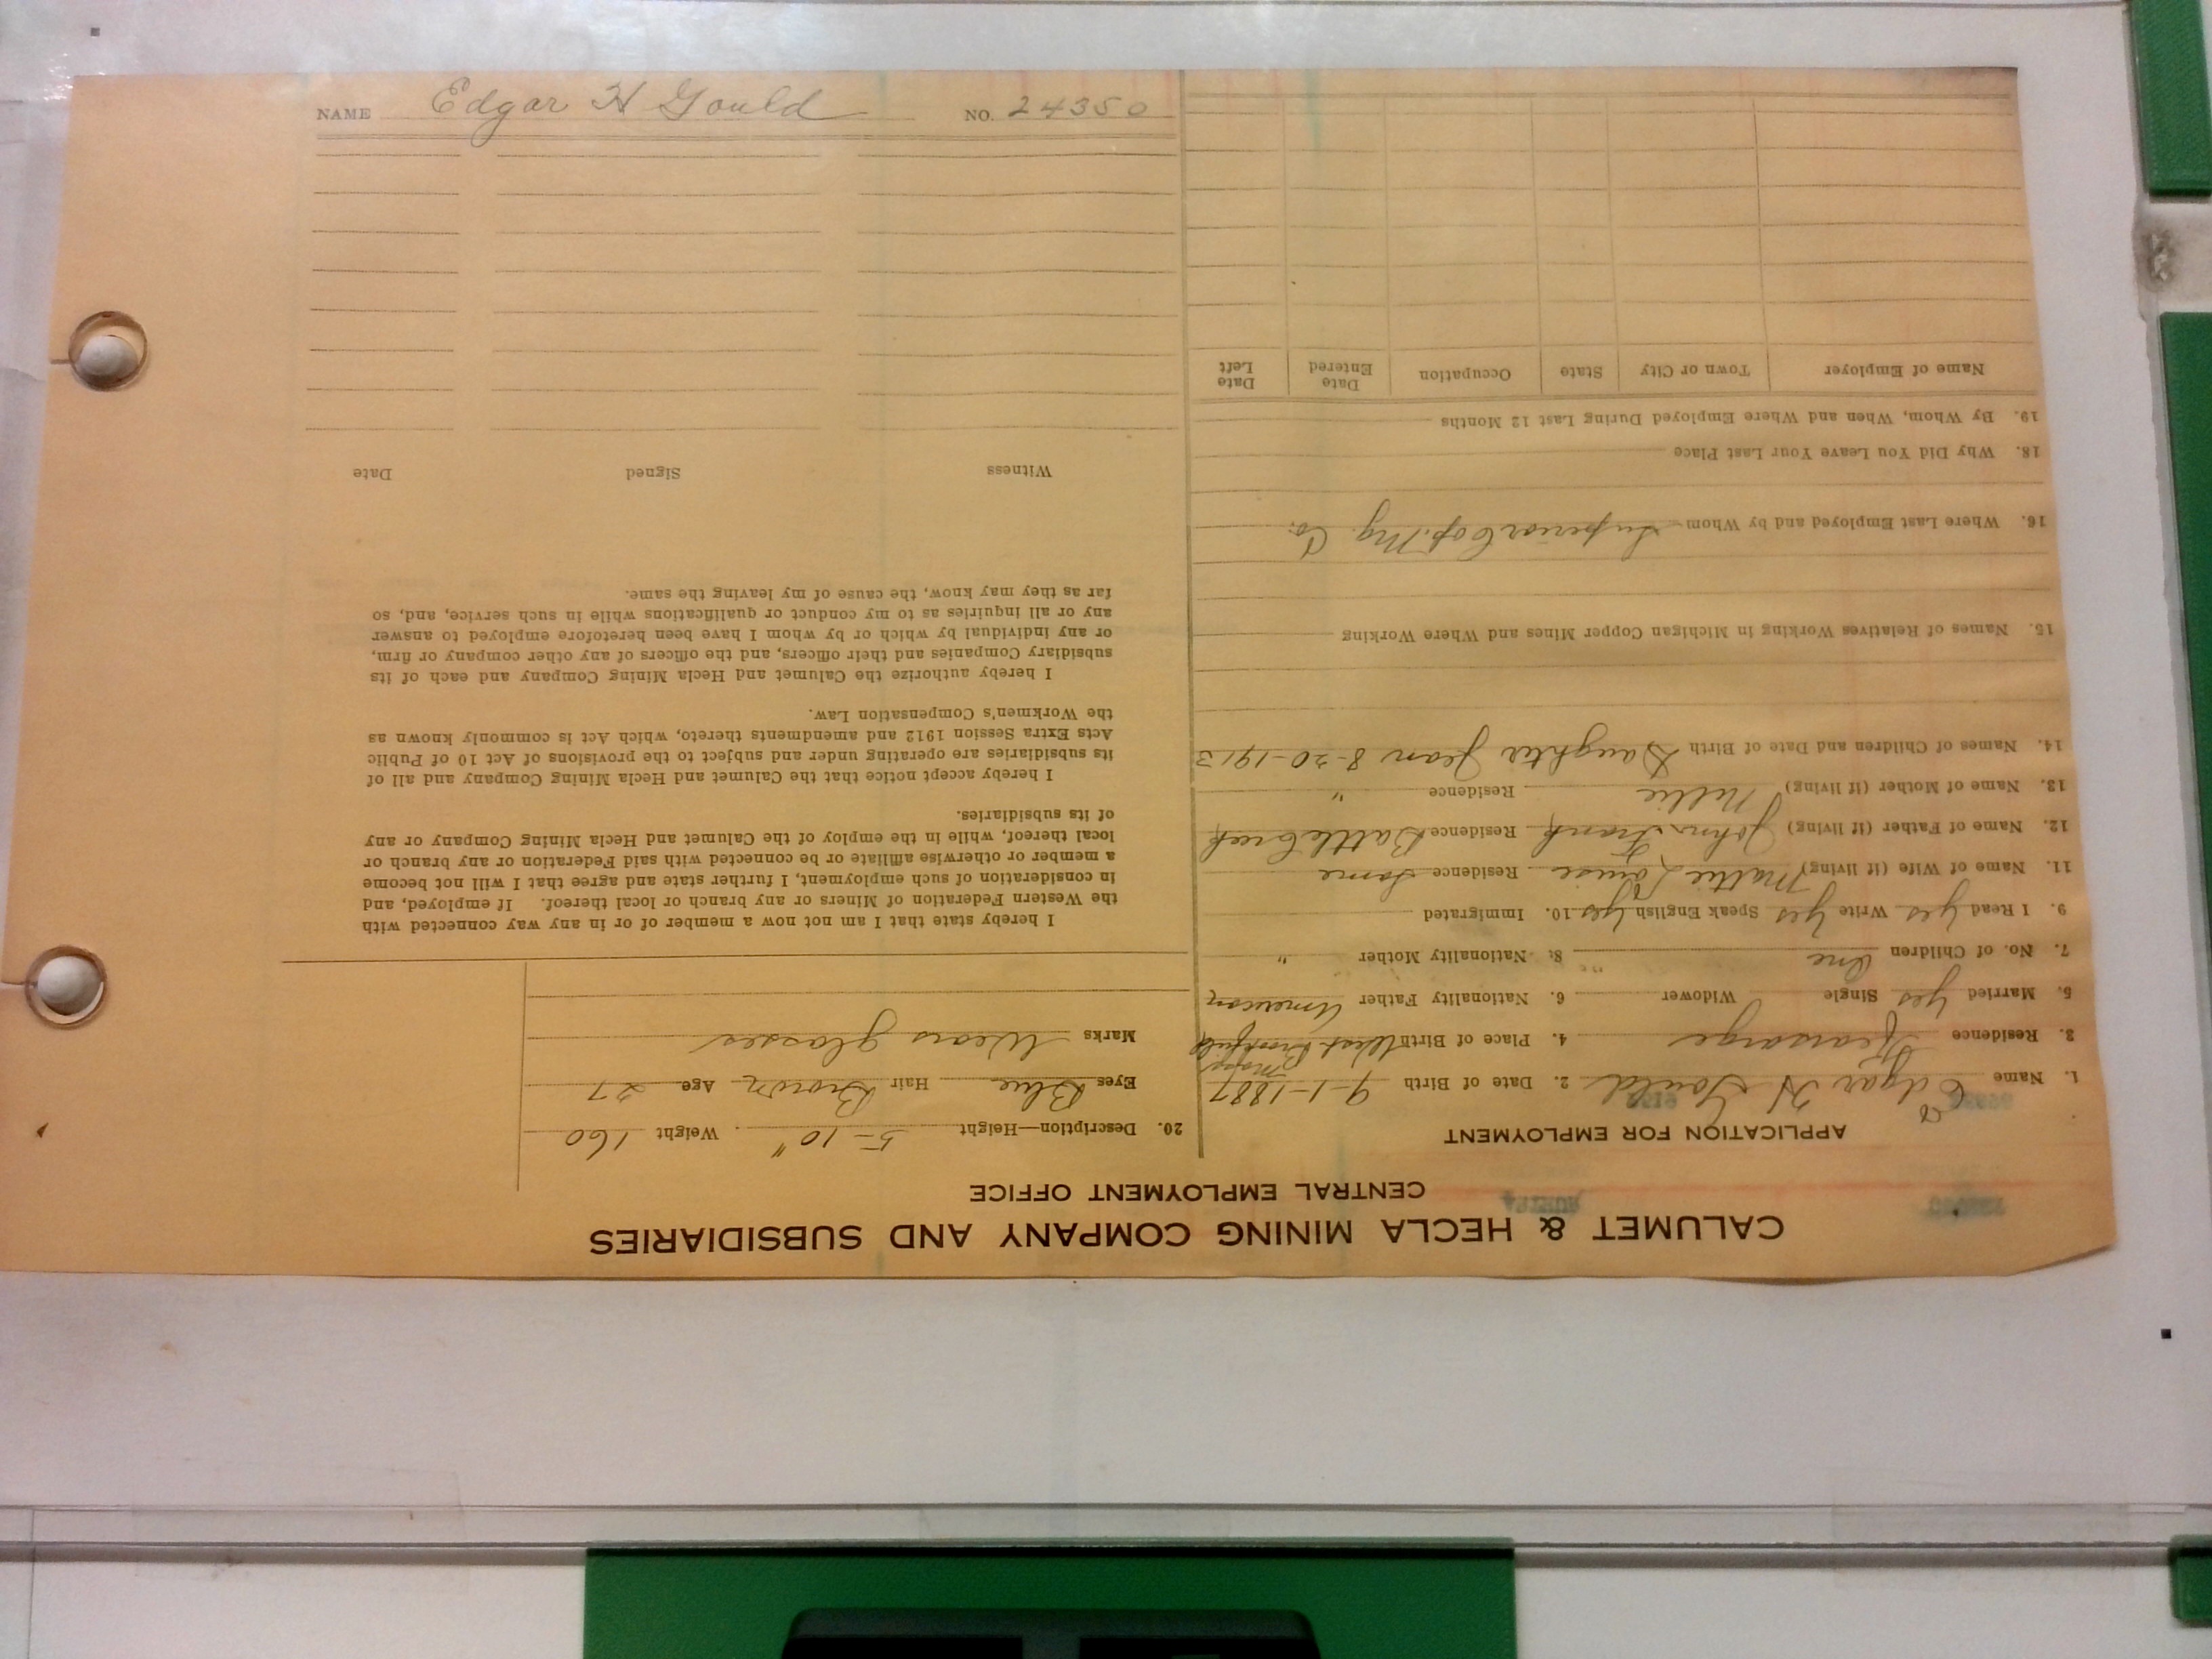 NAME Edgar H Gould NO. 24350
CALUMET & HECLA MINING COMPANY AND SUBSIDIARIES
CENTRAL EMPLOYMENT OFFICE
APPLICATION FOR EMPLOYMENT
1. Name Edgar H Gould 2. Date of Birth 9-1-1887
3. Residence Kearsarge 4. Place of Birth West Brookfield Mass
5. Married Yes Single Widower 6. Nationality Father American
7. No. of Children One 8. Nationality Mother "
9. I Read Yes Write Yes Speak English Yes 10. Immigrated
11. Name of Wife (if living) Mattie Louise Residence Same
12. Name of Father (if living) John Frank Residence Battle Creek
13. Name of Mother (if living) Nellie Residence "
14. Names of Children and Date of Birth Daughter Jean 8-20-1913
15. Names of Relatives Working in Michigan Copper Mines and Where Working
16. Where Last Employed and by Whom Superior Cop. Mg. Co.
18. Why Did You Leave Your Last Place
19. By Whom, When and Where Employed During Last 12 Months
Name of Employer Town or City State Occupation Date Entered Date Left
20. Description—Height 5-10" Weight 160
Eyes Blue Hair Brown Age 27
Marks Wears glasses
I hereby state that I am not now a member of or in any way connected with
the Western Federation of Miners or any branch or local thereof. If employed, and
in consideration of such employment, I further state and agree that I will not become
a member or otherwise affiliate or be connected with said Federation or any branch or
local thereof, while in the employ of the Calumet and Hecla Mining Company or any
of its subsidiaries.
I hereby accept notice that the Calumet and Hecla Mining Company and all of
its subsidiaries are operating under and subject to the provisions of Act 10 of Public
Acts Extra Session 1912 and amendments thereto, which Act is commonly known as
the Workmen's Compensation Law.
I hereby authorize the Calumet and Hecla Mining Company and each of its
subsidiary Companies and their officers, and the officers of any other company or firm,
or any individual by which or by whom I have been heretofore employed to answer
any or all inquiries as to my conduct or qualifications while in such service, and, so
far as they may know, the cause of my leaving the same.
Witness Signed Date